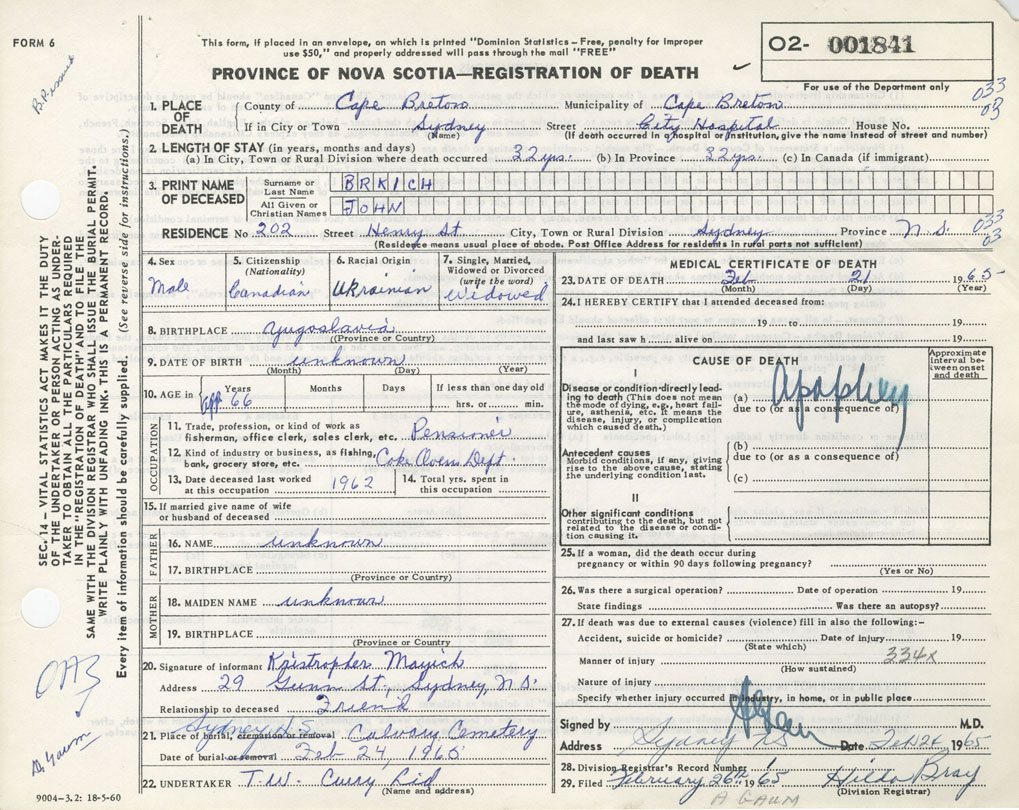 FORM 6
This form, if placed in an envelope, on which is printed "Dominion Statistics – Free, penalty for improper
use $50," and properly addressed will pass through the mail "FREE"
PROVINCE OF NOVA SCOTIA—REGISTRATION OF DEATH
O2- 001841
For use of the Department only
033
03
SEC. 14 – VITAL STATISTICS ACT MAKES IT THE DUTY
OF THE UNDERTAKER OR PERSON ACTING AS UNDER-
TAKER TO OBTAIN ALL THE PARTICULARS REQUIRED
IN THE "REGISTRATION OF DEATH" AND TO FILE THE
SAME WITH THE DIVISION REGISTRAR WHO SHALL ISSUE THE BURIAL PERMIT.
WRITE PLAINLY WITH UNFADING INK. THIS IS A PERMANENT RECORD.
Every item of information should be carefully supplied. (See reverse side for instructions.)
1. PLACE OF DEATH
County of Cape Breton Municipality of Cape Breton
If in City or Town Sydney Street City Hospital House No.
(Name) (If death occurred in a hospital or institution, give the name instead of street and number)
2. LENGTH OF STAY (in years, months and days)
(a) In City, Town or Rural Division where death occurred 32 yrs. (b) In Province 32 yrs. (c) In Canada (if immigrant)
3. PRINT NAME OF DECEASED
Surname or Last Name BRKICH
All Given or Christian Names JOHN
RESIDENCE No 202 Street Henry St City, Town or Rural Division Sydney Province N.S.
033
03
(Residence means usual place of abode. Post Office Address for residents in rural parts not sufficient)
4. Sex Male
5. Citizenship (Nationality) Canadian
6. Racial Origin Ukrainian
7. Single, Married, Widowed or Divorced (write the word) Widowed
8. BIRTHPLACE Yugoslavia
(Province or Country)
9. DATE OF BIRTH unknown
(Month) (Day) (Year)
10. AGE in Years Months Days If less than one day old
66 hrs. or min.
OCCUPATION
11. Trade, profession, or kind of work as
fisherman, office clerk, sales clerk, etc. Pensioner
12. Kind of industry or business, as fishing,
bank, grocery store, etc. Coke Ovens Dept.
13. Date deceased last worked at this occupation 1962
14. Total yrs. spent in this occupation
15. If married give name of wife
or husband of deceased
FATHER
16. NAME unknown
17. BIRTHPLACE
(Province or Country)
MOTHER
18. MAIDEN NAME unknown
19. BIRTHPLACE
(Province or Country)
20. Signature of informant Kristopher Mayich
Address 29 Gunn St, Sydney, N.S.
Relationship to deceased Friend
Sydney N.S.
21. Place of burial, cremation or removal Calvary Cemetery
Date of burial or removal Feb 24, 1965
22. UNDERTAKER T.W. Curry
(Name and address)
9004–3.2: 18-5-60
MEDICAL CERTIFICATE OF DEATH
23. DATE OF DEATH Feb 21 1965
(Month) (Day) (Year)
24. I HEREBY CERTIFY that I attended deceased from:
19 to 19
and last saw h alive on 19
CAUSE OF DEATH
Approximate interval between onset and death
I
Disease or condition directly lead-
ing to death (This does not mean
the mode of dying, e.g., heart failure,
asthenia, etc. It means the
disease, injury, or complication
which caused death.)
(a)
due to (or as a consequence of)
Antecedent causes
Morbid conditions, if any, giving
rise to the above cause, stating
the underlying condition last.
(b)
due to (or as a consequence of)
(c)
II
Other significant conditions
contributing to the death, but not
related to the disease or condi-
tion causing it.
25. If a woman, did the death occur during
pregnancy or within 90 days following pregnancy?
(Yes or No)
26. Was there a surgical operation? Date of operation 19
State findings Was there an autopsy?
27. If death was due to external causes (violence) fill in also the following:–
Accident, suicide or homicide? Date of injury 19
(State which)
Manner of injury 334x
(How sustained)
Nature of injury
Specify whether injury occurred in industry, in home, or in public place
Signed by M.D.
Address Sydney NS Date Feb 24 1965
28. Division Registrar's Record Number
29. Filed February 26th 1965 Hilda Bray
(Division Registrar)
A GAUM